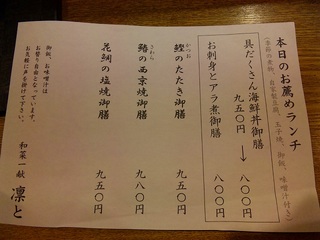 本日のお薦めランチ
(季節の煮物、自家製豆腐、玉子焼、御飯、味噌汁付き)
具だくさん海鮮丼御膳
九五〇円 → 八〇〇円
お刺身とアラ煮御膳 八〇〇円
かつお
鰹のたたき御膳 九五〇円
さわら
鰆の西京焼御膳 九八〇円
花鯛の塩焼御膳 九五〇円
御飯、お味噌汁は
お替り自由となっています。
お気軽に声を掛けて下さい。
和菜一献 凛と